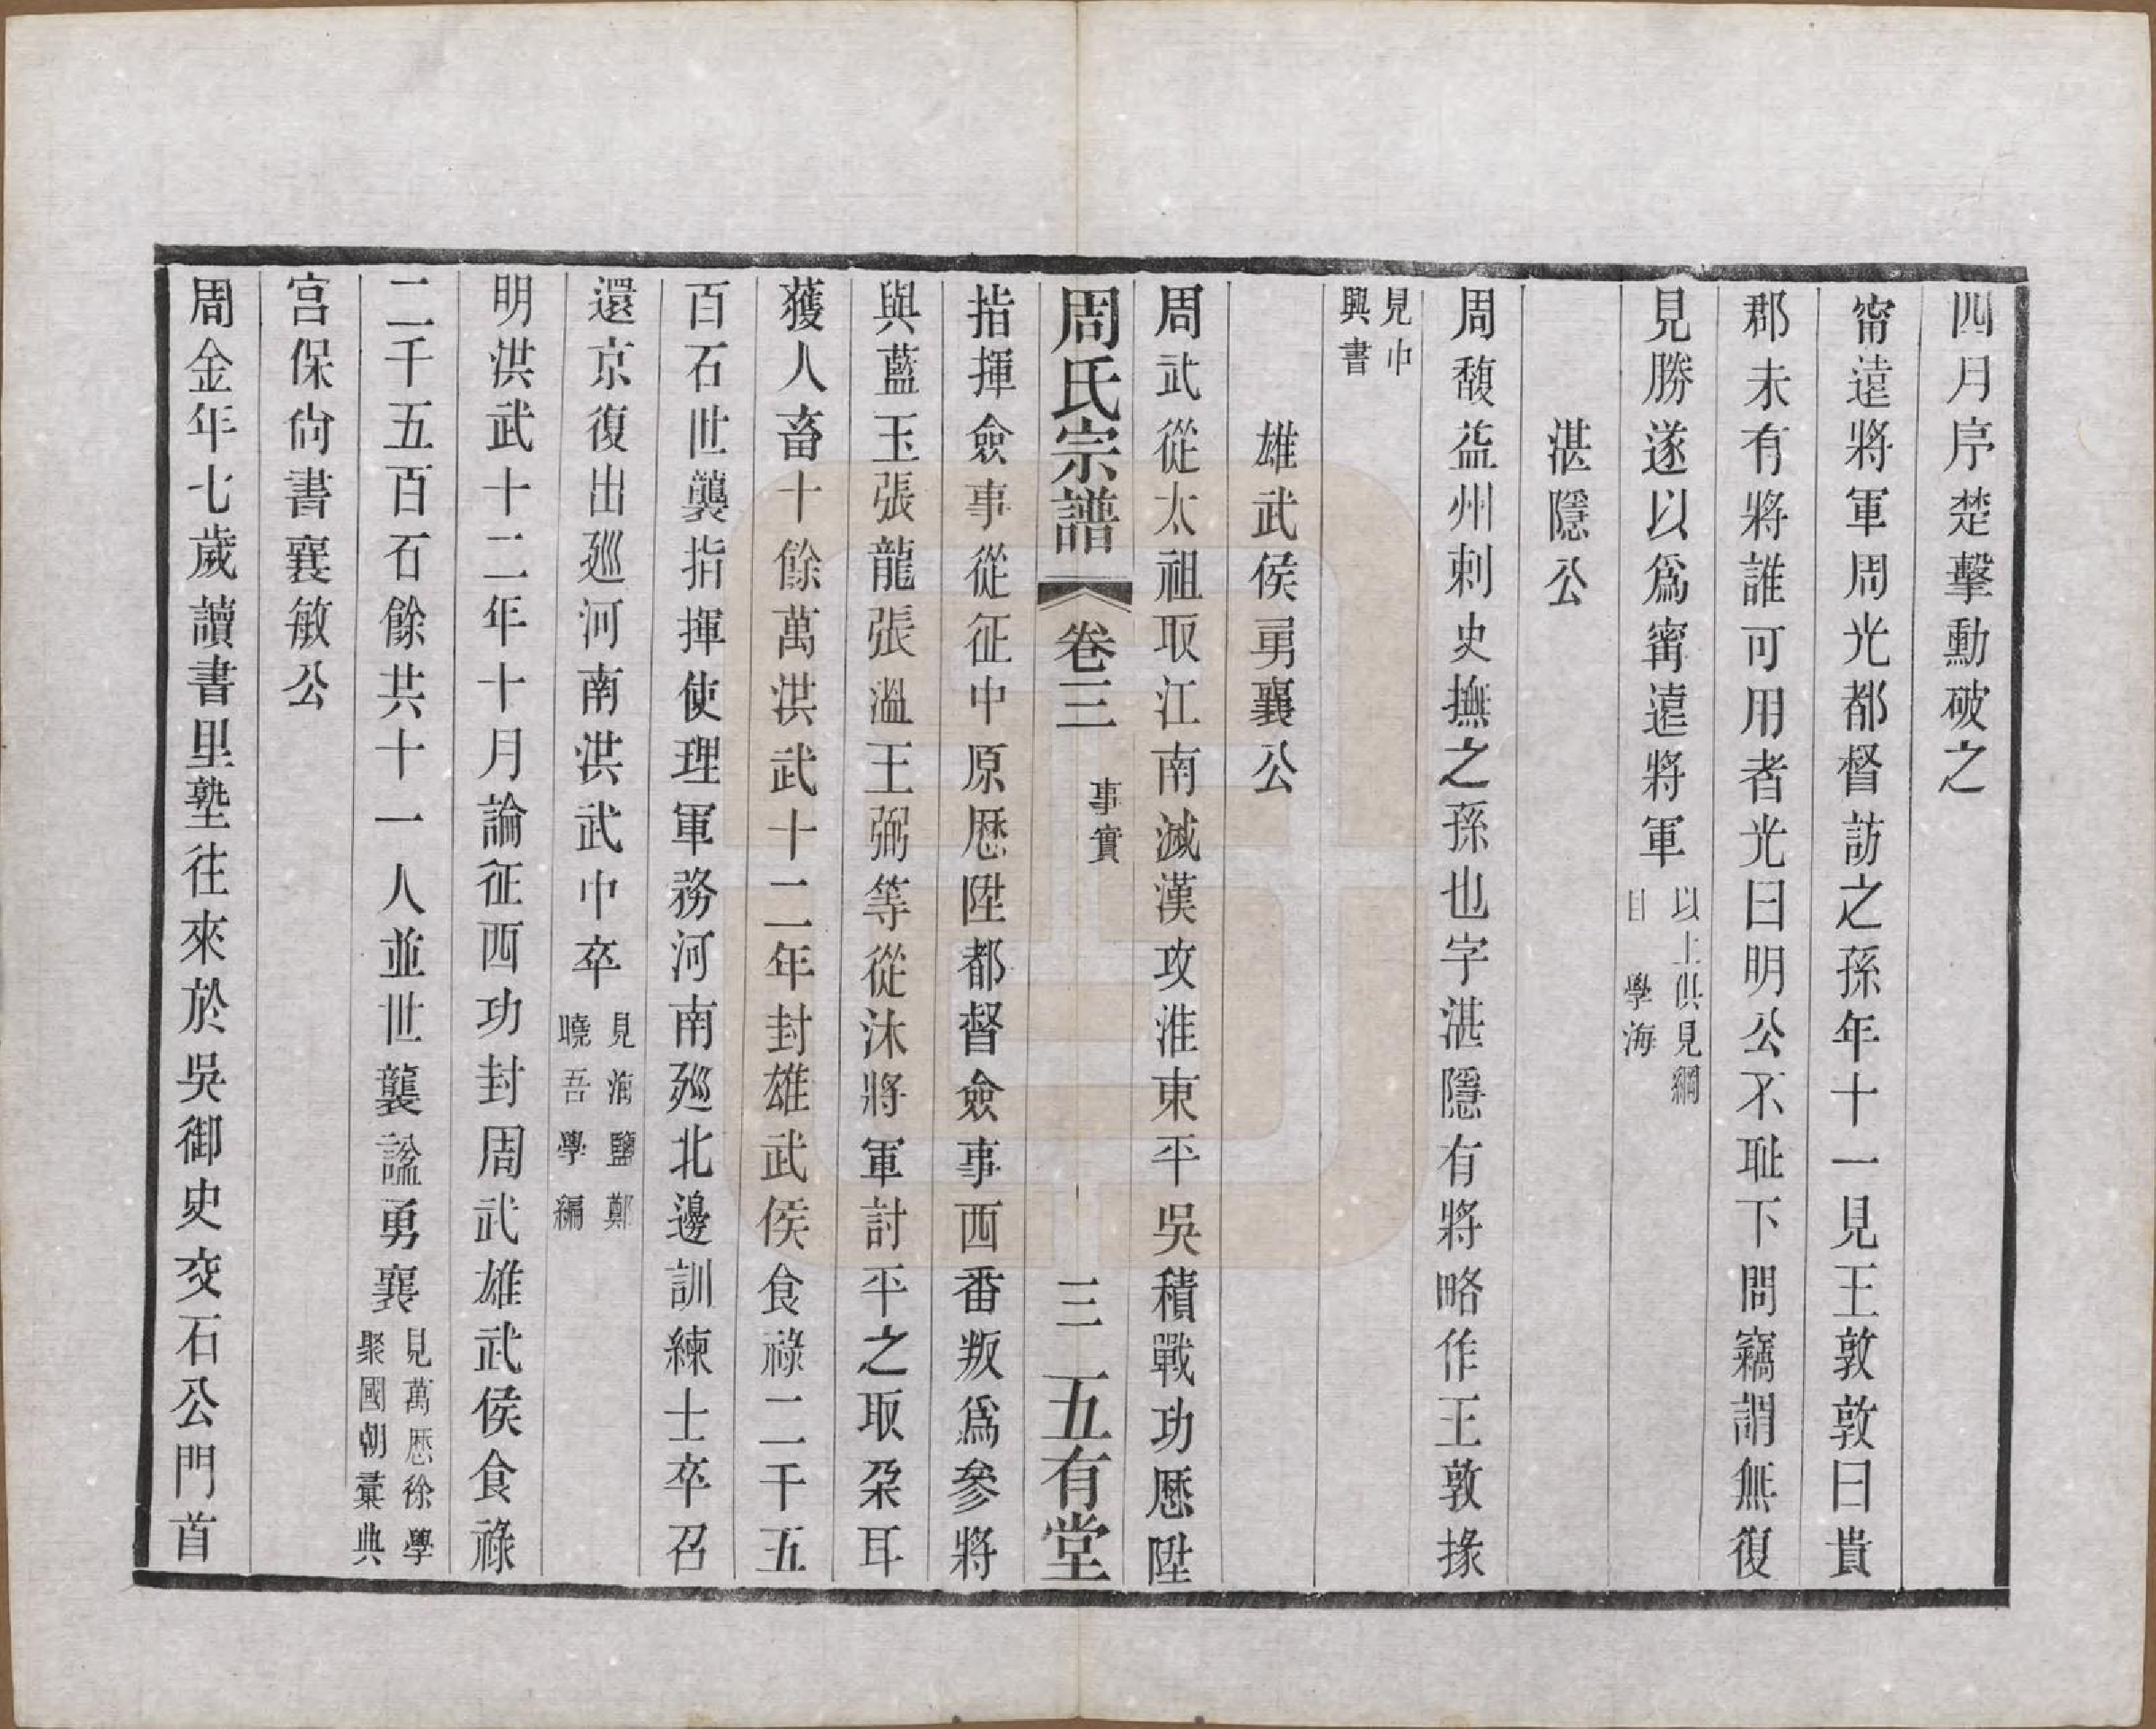 四月序楚擊勳破之
甯遠將軍周光都督訪之孫年十一見王敦敦曰貴
郡未有將誰可用者光曰明公不耻下問竊謂無復
見勝遂以爲甯遠將軍以上俱見綱目 學海
湛隱公
周馥益州刺史撫之孫也字湛隱有將略作王敦掾
見中興書
雄武侯勇襄公
周武從太祖取江南滅漢攻淮東平吳積戰功歷陞
周氏宗譜 卷三 事實 三 五有堂
指揮僉事從征中原歷陞都督僉事西番叛爲參將
與藍玉張龍張溫王弼等從沐將軍討平之取朶耳
獲人畜十餘萬洪武十二年封雄武侯食祿二千五
百石世襲指揮使理軍務河南廵北邊訓練士卒召
還京復出廵河南洪武中卒見海鹽鄭曉吾學編
明洪武十二年十月論征西功封周武雄武侯食祿
二千五百石餘共十一人並世襲諡勇襄見萬歷徐學聚國朝彙典
宮保尙書襄敏公
周金年七歲讀書里塾往來於吳御史交石公門首